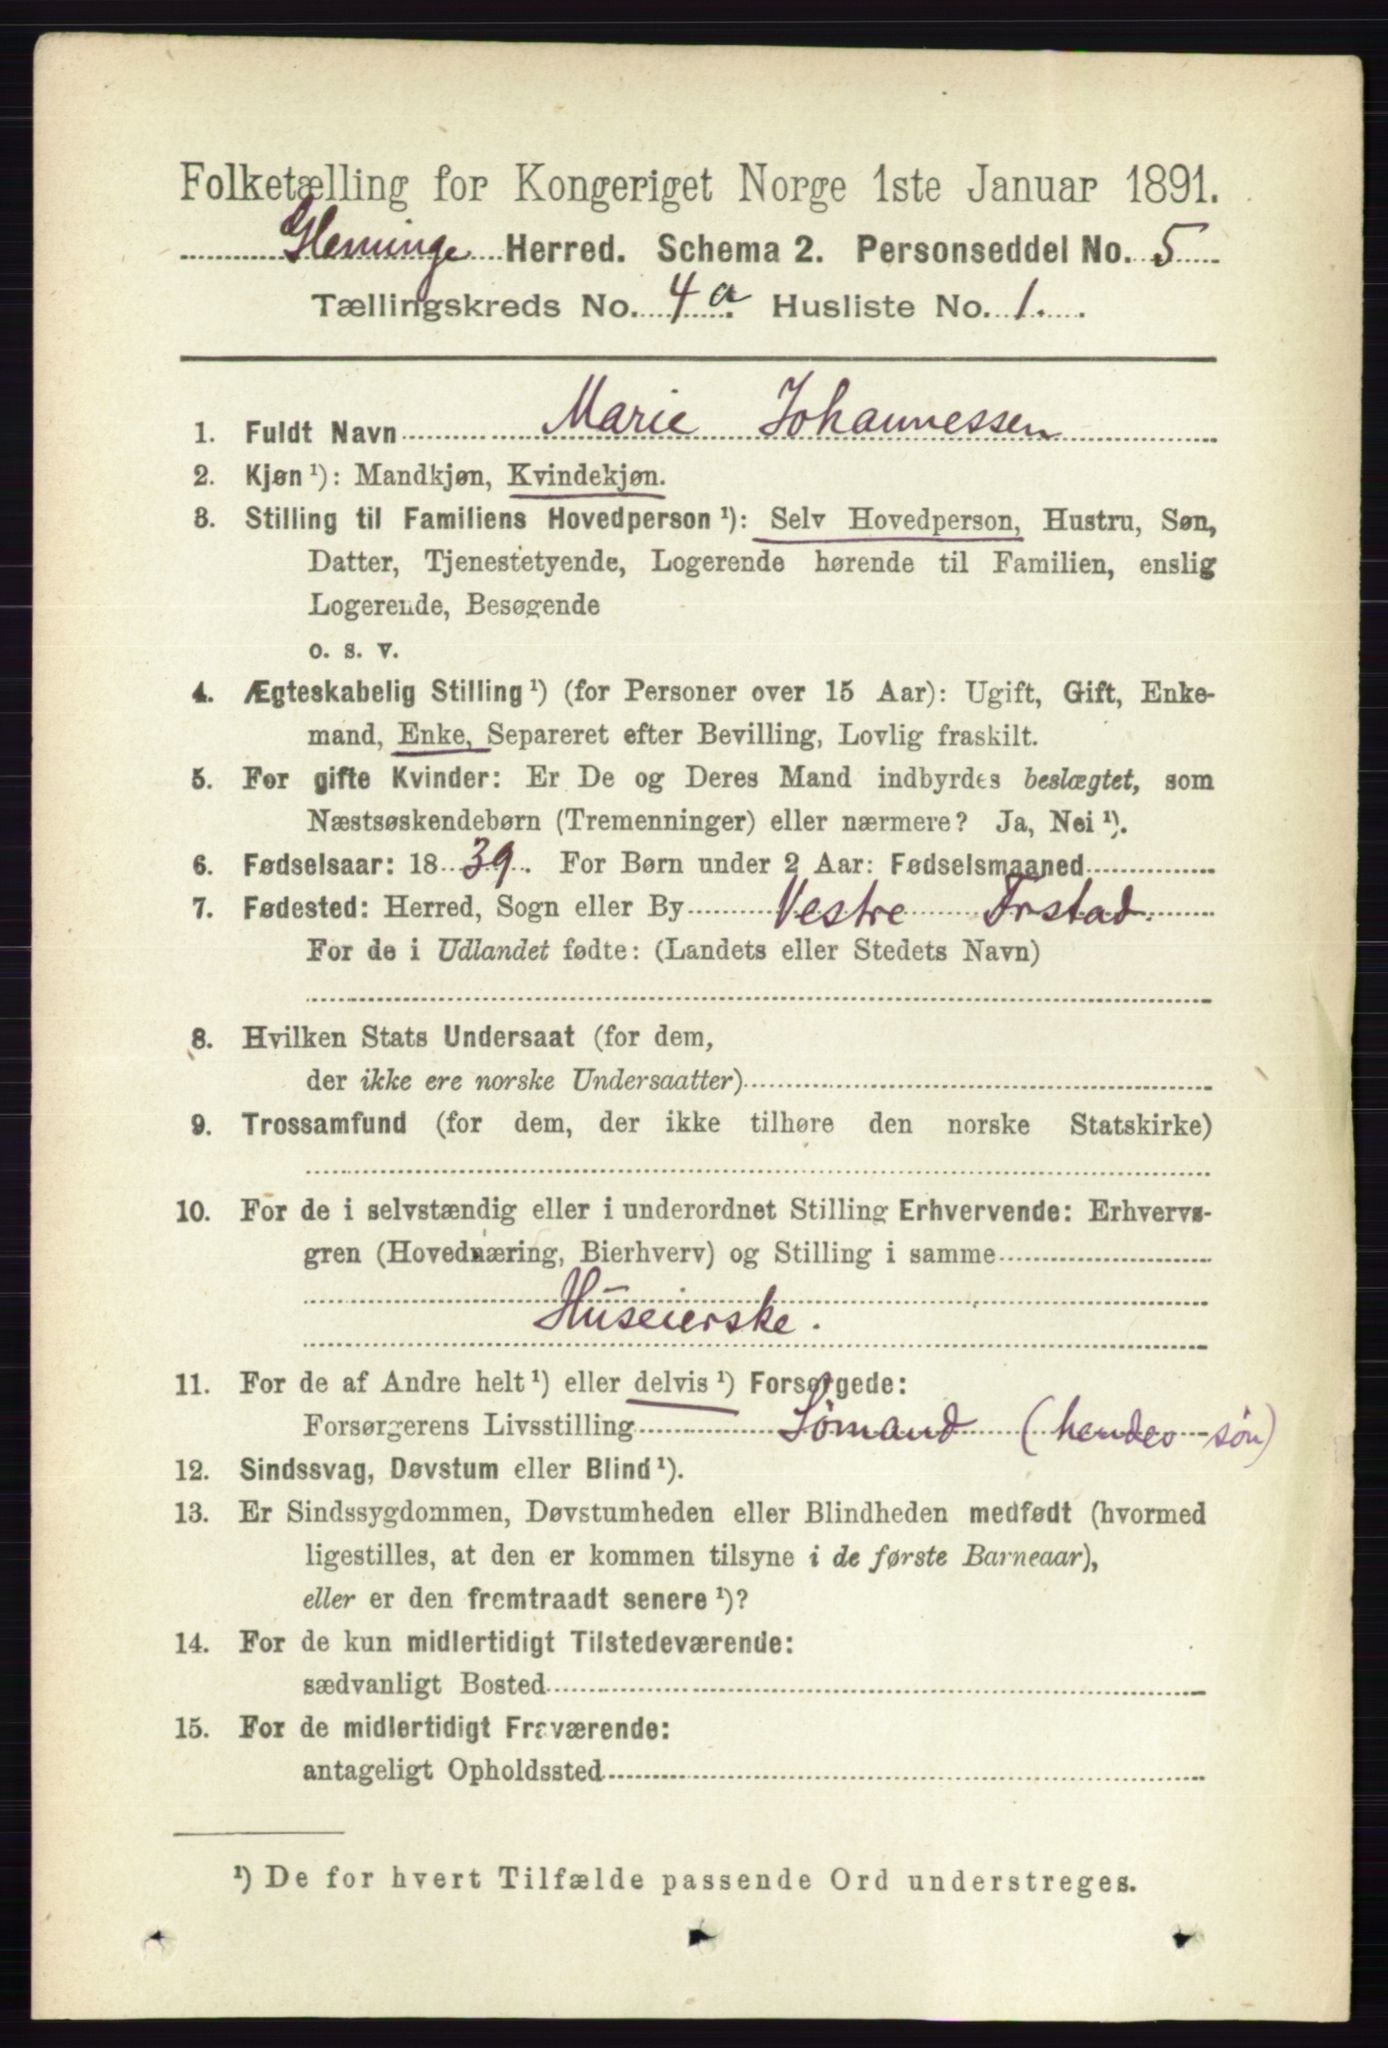 Folketælling for Kongeriget Norge 1ste Januar 1891.
Glemminge Herred. Schema 2. Personseddel No. 5
Tællingskreds No. 4a Husliste No. 1.
1. Fuldt Navn Marie Johannessen
2. Kjøn ¹): Mandkjøn, Kvindekjøn.
3. Stilling til Familiens Hovedperson ¹): Selv Hovedperson, Hustru, Søn,
Datter, Tjenestetyende, Logerende hørende til Familien, enslig
Logerende, Besøgende
o. s. v.
4. Ægteskabelig Stilling ¹) (for Personer over 15 Aar): Ugift, Gift, Enke-
mand, Enke, Separeret efter Bevilling, Lovlig fraskilt.
5. For gifte Kvinder: Er De og Deres Mand indbyrdes beslægtet, som
Næstsøskendebørn (Tremenninger) eller nærmere? Ja, Nei ¹).
6. Fødselsaar: 1839. For Børn under 2 Aar: Fødselsmaaned
7. Fødested: Herred, Sogn eller By Vestre Trstad.
For de i Udlandet fødte: (Landets eller Stedets Navn)
8. Hvilken Stats Undersaat (for dem,
der ikke ere norske Undersaatter)
9. Trossamfund (for dem, der ikke tilhøre den norske Statskirke)
10. For de i selvstændig eller i underordnet Stilling Erhvervende: Erhvervs-
gren (Hovednæring, Bierhverv) og Stilling i samme
Huseierske.
11. For de af Andre helt ¹) eller delvis ¹) Forsørgede:
Forsørgerens Livsstilling Sømand (hendes søn)
12. Sindssvag, Døvstum eller Blind ¹).
13. Er Sindssygdommen, Døvstumheden eller Blindheden medfødt (hvormed
ligestilles, at den er kommen tilsyne i de første Barneaar),
eller er den fremtraadt senere ¹)?
14. For de kun midlertidigt Tilstedeværende:
sædvanligt Bosted
15. For de midlertidigt Fraværende:
antageligt Opholdssted
¹) De for hvert Tilfælde passende Ord understreges.